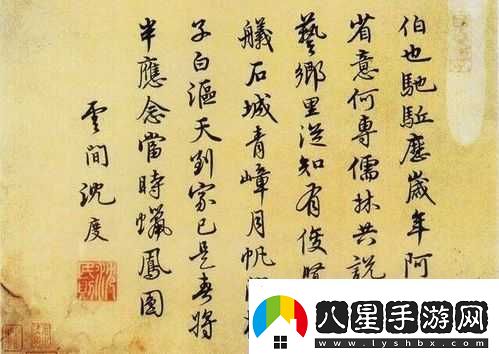 伯也馳駈應歲年阿
省意何專儒林共說
藝鄉里從知有俊
艤石城青嶂月帆
子白漚天到家已是春將
半應念當時蠟鳳圖
雲間沈度
八星手游网
www.lyshbx.com